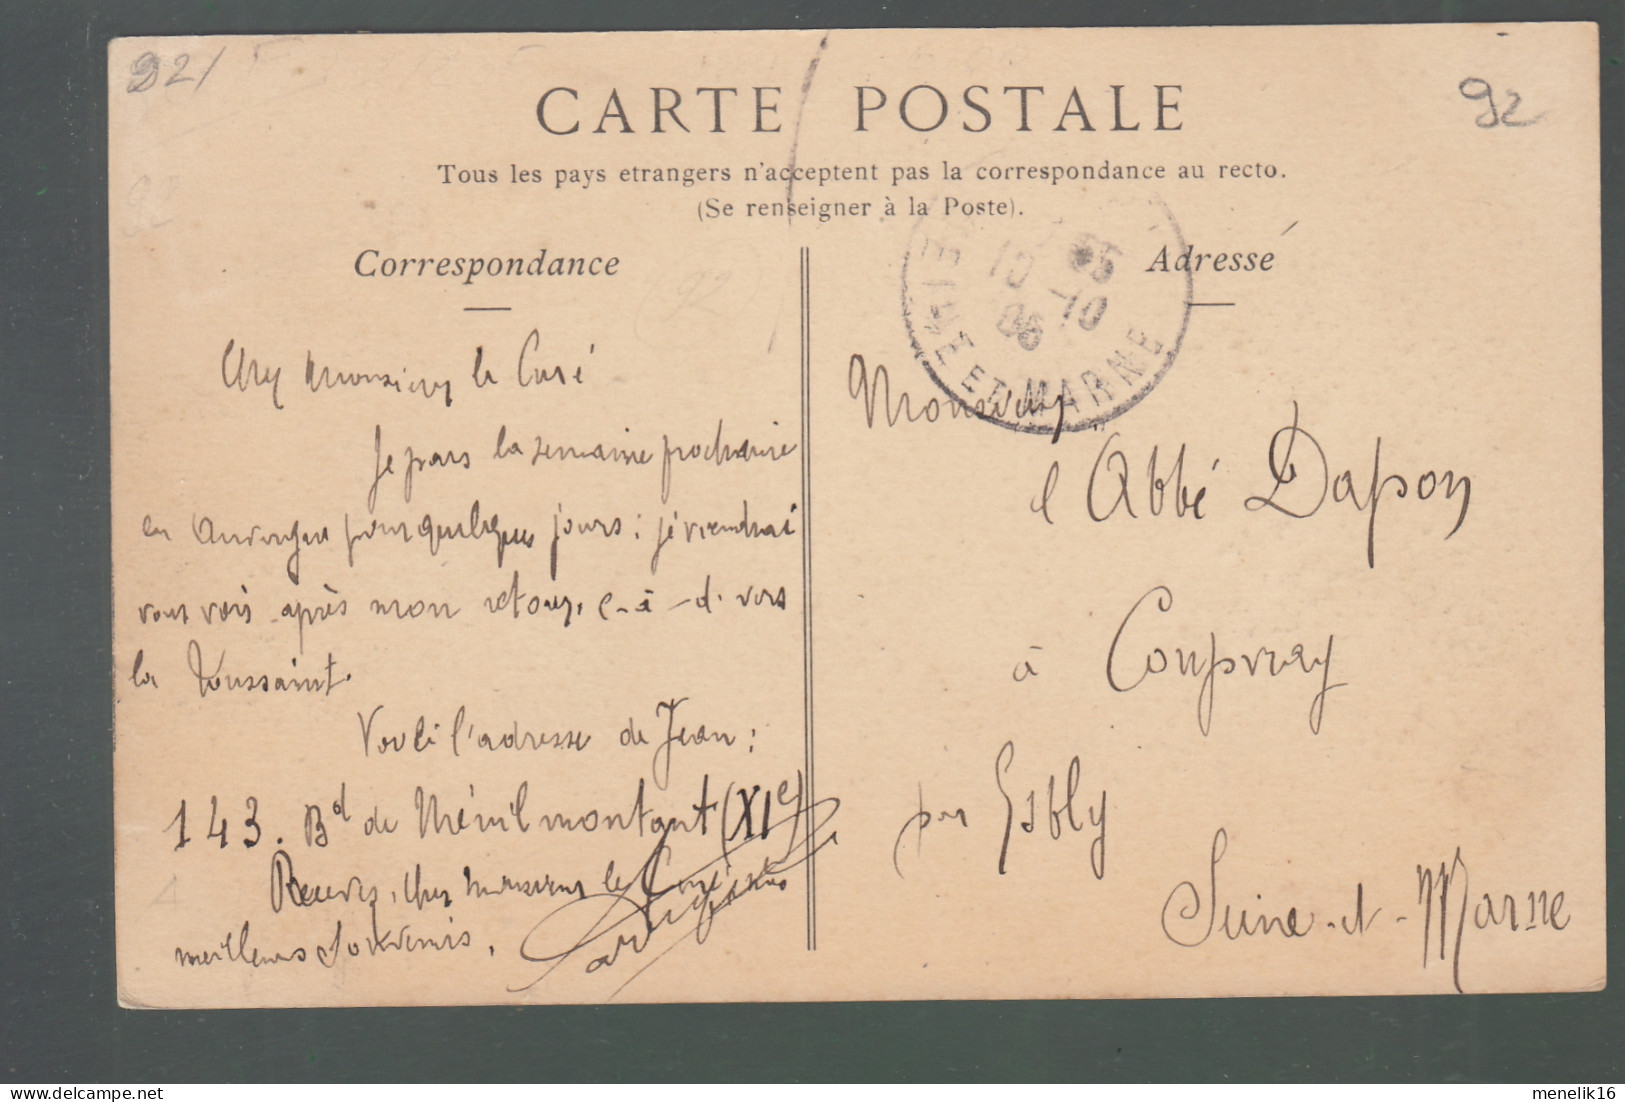 92/
92
CARTE POSTALE
Tous les pays etrangers n'acceptent pas la correspondance au recto.
(Se renseigner à la Poste).
92
Correspondance
92
Cher Monsieur le Curé
Je pars la semaine prochaine
en Auvergne pour quelques jours ; je viendrai
vous voir après mon retour, c-à-d. vers
la Toussaint.
Voici l'adresse de Jean :
143. Bd de Ménilmontant (XIe)
Recevez, cher Monsieur le Curé, mes
meilleurs souvenirs.
Adresse
10 05
10
06
SEINE ET MARNE
Monsieur
l'Abbé Dapon
à Coupvray
par Esbly
Seine-et-Marne
menelik16